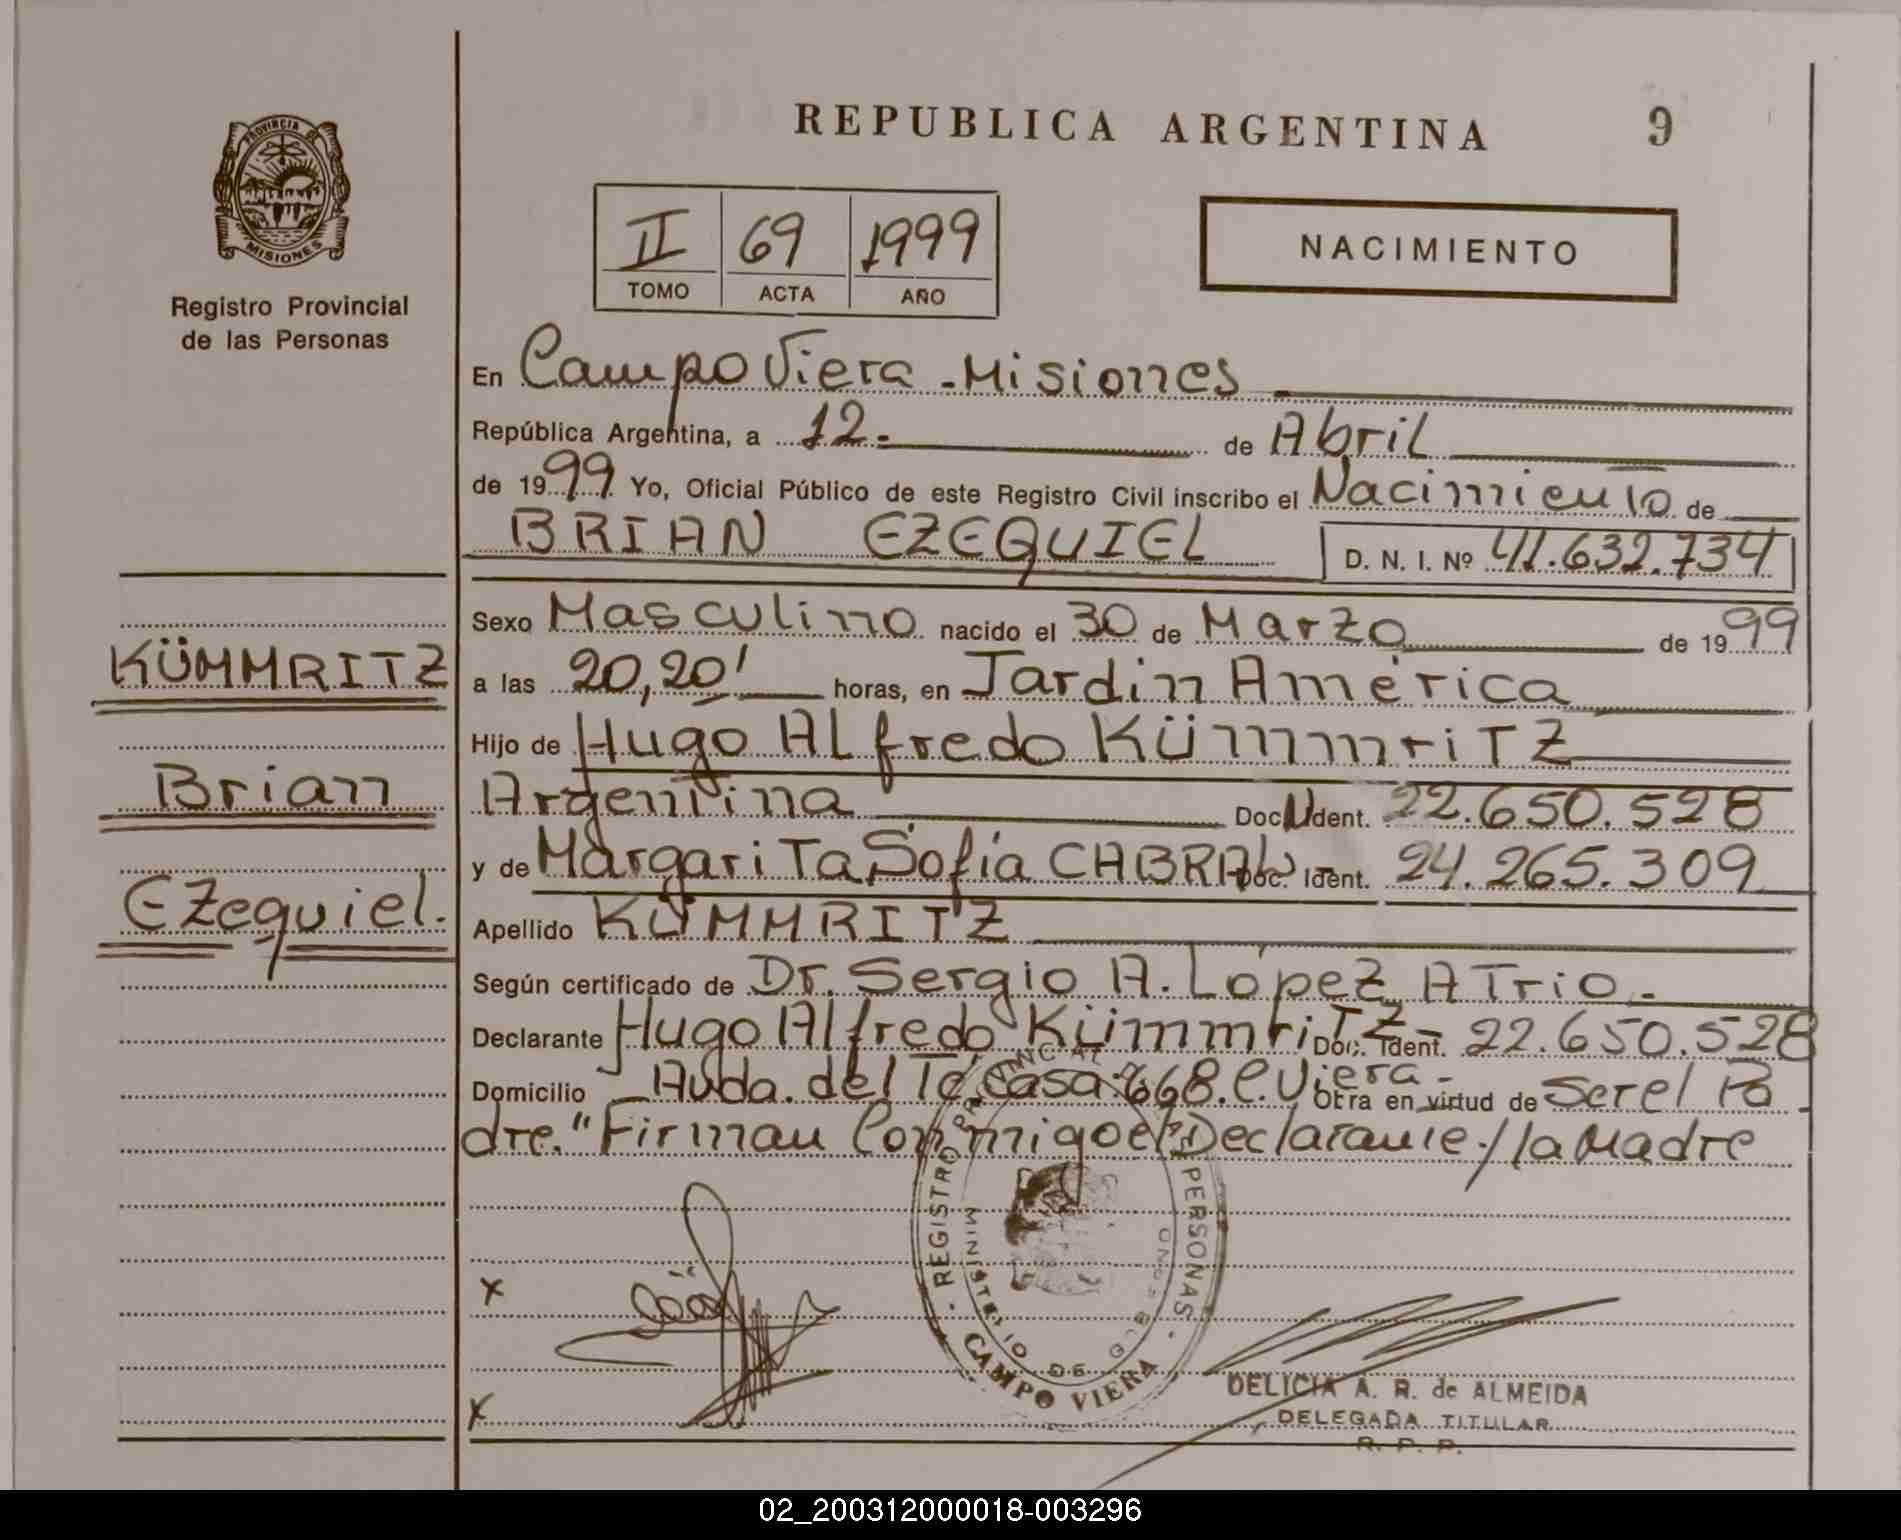 REPUBLICA ARGENTINA 9
PROVINCIA DE MISIONES
Registro Provincial
de las Personas
II 69 1999
TOMO ACTA AÑO
NACIMIENTO
En Campo Viera - Misiones
República Argentina, a 12.- de Abril
de 1999 Yo, Oficial Público de este Registro Civil inscribo el Nacimiento de
BRIAN EZEQUIEL D. N. I. Nº 41.632.734
Sexo Masculino nacido el 30 de Marzo de 1999
a las 20,20' horas, en Jardin América
Hijo de Hugo Alfredo Kümmritz
Argentina Doc. Ident. 22.650.528
y de Margarita Sofía CABRAL Doc. Ident. 24.265.309
Apellido KÜMMRITZ
Según certificado de Dr. Sergio A. López Atrio.-
Declarante Hugo Alfredo Kümmritz - Doc. Ident. 22.650.528
Domicilio Avda. del Té casa: 668. C. Viera - Obra en virtud de Ser el Pa
dre." Firman Conmigo el Declarante / la Madre
KÜMMRITZ
Brian
Ezequiel.
REGISTRO PROVINCIAL PERSONAS
MINISTERIO DE
CAMPO VIERA
x
x
DELICIA A. R. de ALMEIDA
DELEGADA TITULAR
R. P. P.
02_200312000018-003296